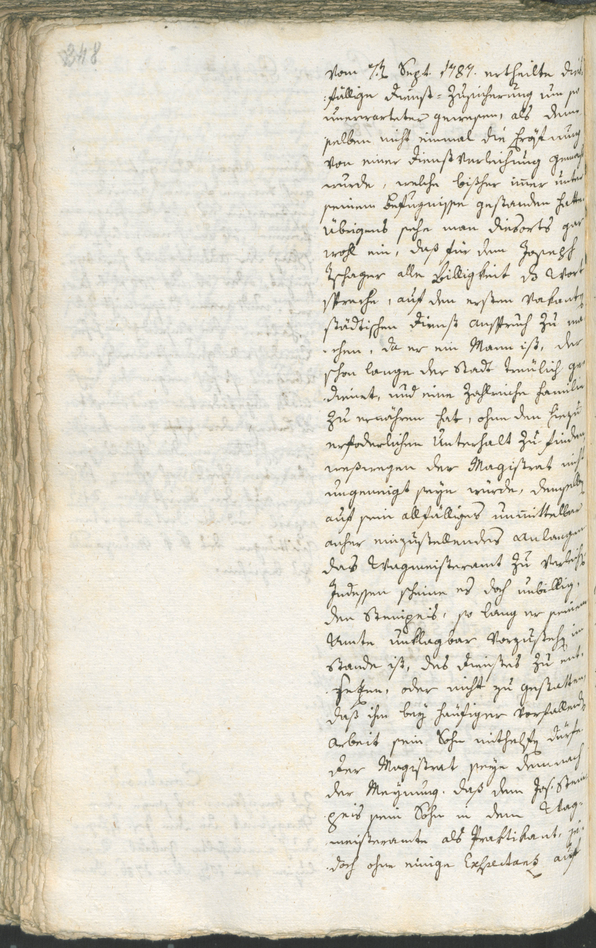 248
vom 7t Sept. 1787. ertheilte dieß
fällige Dienst-Zusicherung um so
unerwarteter gewesen, als dem-
selben nicht einmal die Eröfnung
von einer Dienstverleihung gemacht
wurde, welche bißher immer unter
seinem Befugnisse gestanden hatte.
Übrigens sehe man diesorts gar
wohl ein, daß für dem Joseph
Zschager alle Billigkeit ds Wort
spreche, auf den ersten vakanten
städtischen Dienst Anspruch zu ma-
chen, da er ein Mann ist, der
schon lange der Stadt treulich ge-
dienet, und eine zahlreiche Familie
zu ernähren hat, ohne den hiezu
erforderlichen Unterhalt zu finden
weßwegen der Magistrat nicht
ungeneigt seyn würde, demselben
auf sein allfälliges unmittelbar
anher einzustellendes Anlangen
das Wagmeisteramt zu verleihen
Indessen scheine es doch unbillig,
den Stempeis, so lang er seinem
Amte unklagbar vorzustehen im
Stande ist, des Dienstes zu ent-
setzen, oder nicht zu gestatten,
daß ihm bey häufiger vorfallender
Arbeit sein Sohn mithelfen dürfe
Der Magistrat seye demnach
der Meynung, daß dem Jos. Stem
peis sein Sohn in dem Wag-
meisteramte als Praktikant, je-
doch ohne einige Exspectanz auf